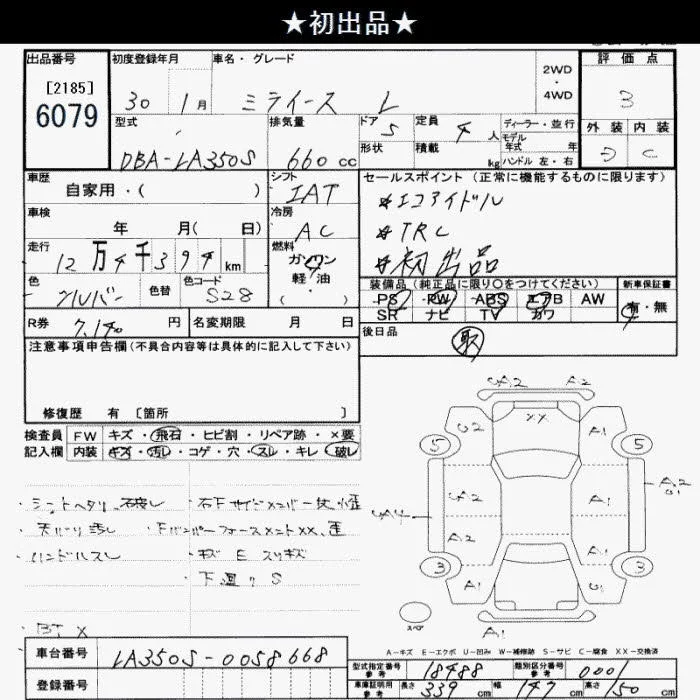 ★初出品★
出品番号
[2185]
6079
初度登録年月
30 1月
車名・グレード
ミライース L
2WD
・
4WD
評価点
3
外装 内装
D C
型式
DBA-LA350S
排気量
660 cc
ドア 5
形状
定員 4 人
積載 kg
ディーラー・並行
モデル
年式 年
ハンドル 左・右
車歴
自家用・( )
シフト
IAT
セールスポイント (正常に機能するものに限ります)
*エコアイドル
*TRC
*初出品
車検
年 月( 日)
冷房
AC
走行
12万4千394km
燃料
ガソリン
軽油
・( )
色
シルバー
色替
色コード
S28
装備品(純正品に限り○をつけてください)
PS PW ABS エアB AW
SR ナビ TV カワ
新車保証書
有・無
R券 7,140 円
名変期限 月 日
後日品
取
注意事項申告欄(不具合内容等は具体的に記入して下さい)
修復歴 有 〔箇所 〕
検査員
記入欄
FW キズ・飛石・ヒビ割・リペア跡・×要
内装 キズ・汚レ・コゲ・穴・スレ・キレ・破レ
・シートヘタリ、破レ
・天バリ汚レ
・ハンドルスレ
・右Fサイドメンバー
・Fバンパーフォースメント××、歪
・キズ E スリキズ
・下廻り S
・BT ×
A2 A2
××
U2 A1
5 5
A2 A1
A4
A2 A1
A2
3 3
A1
A1
スペア
A-キズ E-エクボ U-凹み W-補修跡 S-サビ C-腐食 XX-交換済
車台番号
LA350S-0058668
登録番号
型式指定番号
参考
18488
類別区分番号
参考
0001
車庫証明用
参考
長さ 339 cm 幅 147 cm 高さ 150 cm